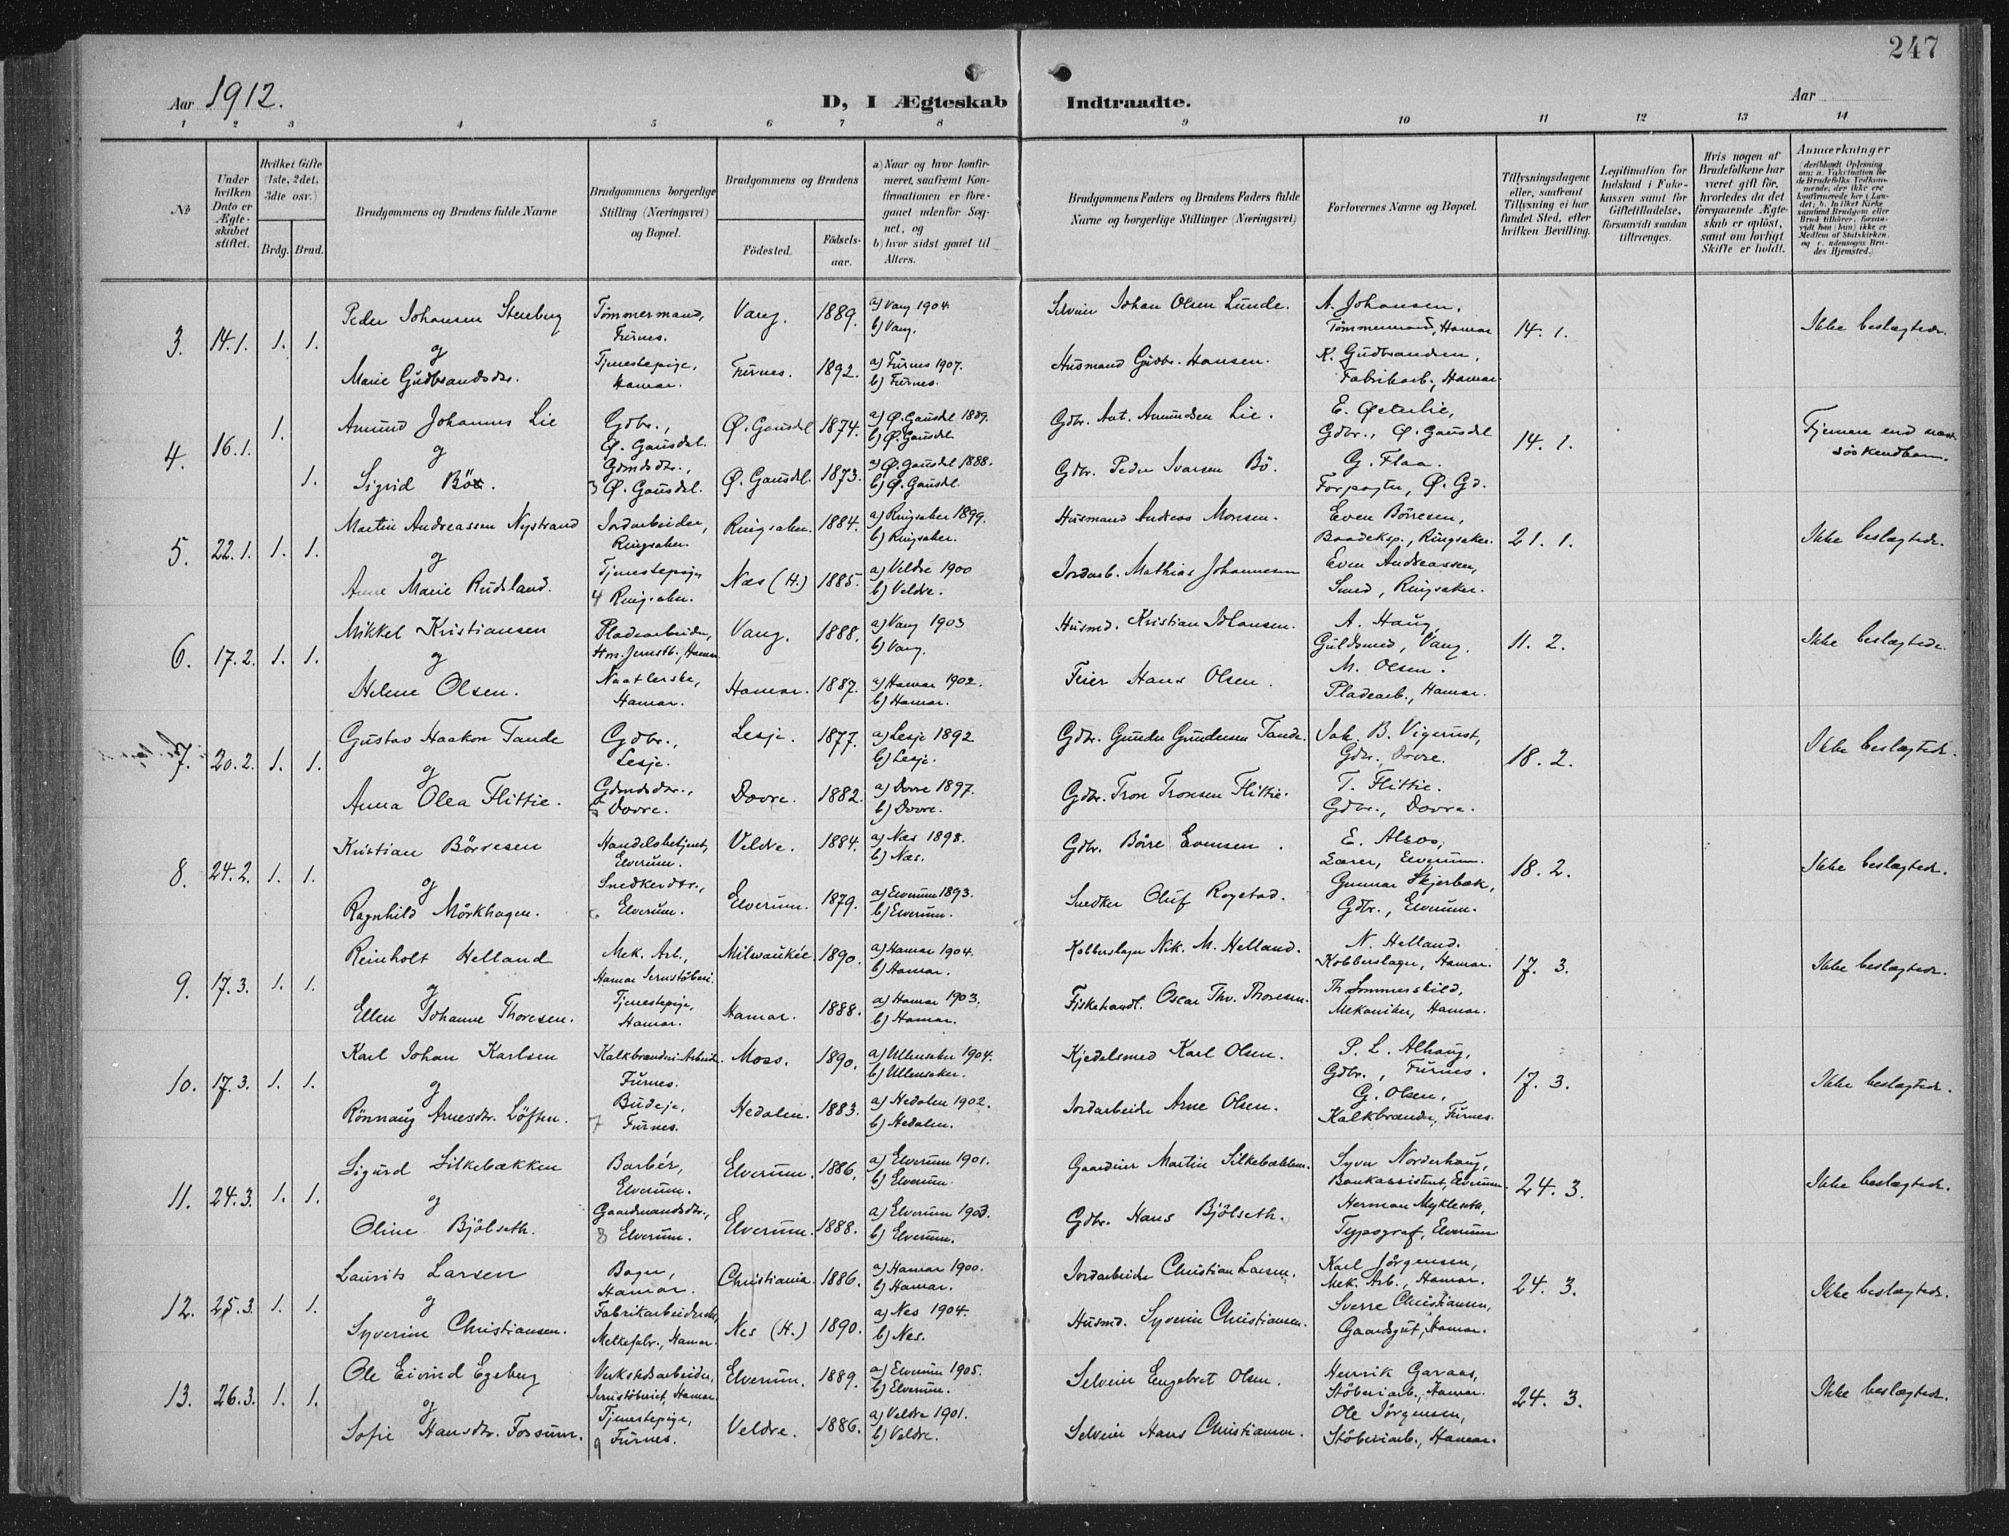 247
Aar 1912.
D, I Ægteskab Indtraadte.
Aar
1 2 3 4 5 6 7 8 9 10 11 12 13 14
No
Under hvilken Dato er Ægteskabet stiftet.
Hvilket Gifte (1ste, 2det, 3die osv.)
Brdg. Brud.
Brudgommens og Brudens fulde Navne
Brudgommens borgerlige Stilling (Næringsvei) og Bopæl.
Brudgommens og Brudens
Fødested.
Fødselsaar.
a) Naar og hvor konfirmeret, saafremt Konfirmationen er foregaaet udenfor Sognet, og
b) hvor sidst gaaet til Alters.
Brudgommens Faders og Brudens Faders fulde Navne og borgerlige Stillinger (Næringsvei)
Forlovernes Navne og Bopæl.
Tillysningsdagene eller, saafremt Tillysning ei har fundet Sted, efter hvilken Bevilling.
Legitimation for Indskud i Enkekassen samt for Giftetilladelse, forsaavidt saadan tiltrænges.
Hvis nogen af Brudefolkene har været gift før, hvorledes da det foregaaende Ægteskab er opløst, samt om lovligt Skifte er holdt.
Anmærkninger
3. 14.1. 1. 1. Peder Johansen Stenberg Tømmermand, Furnes. Vang. 1889. a) Vang 1904 b) Vang. Selveier Johan Olsen Lunde. A. Johansen, Tømmermand, Hamar 14. 1. Ikke beslægtede.
og
Marie Gudbrandsdtr. Tjenestepige, Hamar. Furnes. 1892. a) Furnes 1907. b) Furnes. Husmand Gudbr. Hansen. K. Gudbrandsen, Fabrikarb., Hamar.
4. 16.1. 1. Amund Johannes Lie Gdbr., Ø. Gausdal. Ø. Gausdal 1874. a) Ø. Gausdal 1889. b) Ø. Gausdal. Gdbr. Ant. Amundsen Lie. E. Øverlie, Gdbr., Ø. Gausdal 14. 1. Fjernere end næstsøskendbarn.
og
1. Sigrid Bø. Gdmdsdtr., 3 Ø. Gausdal. Ø. Gausdal. 1873. a) Ø. Gausdal 1888. b) Ø. Gausdal. Gdbr. Peder Ivarsen Bø. G. Flaa. Forpagter, Ø. Gd.
5. 22.1. 1. 1. Martin Andreassen Nystrand Jordarbeider, Ringsaker. Ringsaker. 1884. a) Ringsaker 1899. b) Ringsaker. Husmand Andreas Monsen. Even Børresen, Baadeksp., Ringsaker. 21. 1. Ikke beslægtede.
og
Anne Marie Rudsland. Tjenestepige 4 Ringsaker. Næs (H.) 1885. a) Veldre 1900 b) Veldre. Jordarb. Mathias Johannesen Even Andreassen, Smed, Ringsaker.
6. 17.2. 1. 1. Mikkel Kristiansen Pladearbeider, Hm. Jernstb., Hamar. Vang. 1888. a) Vang 1903 b) Vang. Husmd. Kristian Johansen. A. Haug, Guldsmed, Vang. 11. 2. Ikke beslægtede.
og
Helene Olsen. Naatlerske, Hamar. Hamar. 1887. a) Hamar 1902. b) Hamar. Feier Hans Olsen. M. Olsen. Pladearb., Hamar.
7. 20.2. 1. 1. Gustav Haakon Tande Gdbr., Lesje. Lesje. 1877. a) Lesje 1892 b) Lesje. Gdbr. Gunder Gundersen Tande. Jak. B. Vigerust, Gdbr., Dovre. 18. 2. Ikke beslægtede.
og
Anna Olea Flittie. Gdmdsdtr., 5 Dovre. Dovre. 1882. a) Dovre 1897. b) Dovre. Gdbr. Tron Tronsen Flittie. T. Flittie. Gdbr., Dovre.
8. 24.2. 1. 1. Kristian Børresen Handelsbetjent, Elverum. Veldre. 1884. a) Næs 1898. b) Næs. Gdbr. Børre Evensen. E. Alsos, Lærer, Elverum. 18. 2. Ikke beslægtede.
og
Ragnhild Mørkhagen. Snedkerdtr., 6 Elverum. Elverum. 1879. a) Elverum 1893. b) Elverum. Snedker Oluf Rogstad. Gunnar Skjerbæk, Gdbr., Elverum.
9. 17.3. 1. 1. Reinholt Helland Mek. Arb., Hamar Jernstøberi. Milwaukie. 1890. a) Hamar 1904. b) Hamar. Kobberslager Nik. M. Helland. N. Helland. Kobberslager, Hamar. 17. 3. Ikke beslægtede.
og
Ellen Johanne Thoresen. Tjenestepige, Hamar. Hamar. 1888. a) Hamar 1903. b) Hamar. Fiskehandl. Oscar Thv. Thoresen. Th. Sommerskild, Mekaniker, Hamar.
10. 17.3. 1. 1. Karl Johan Karlsen Kalkbrænderi-Arbeider Furnes. Moss. 1890. a) Ullensaker 1904. b) Ullensaker. Kjedelsmed Karl Olsen. P. L. Alhaug, Gdbr., Furnes. 17. 3. Ikke beslægtede.
og
Rønnaug Arnesdtr. Løften. Budeje, 7 Furnes. Hedalen. 1883. a) Hedalen 1902. b) Hedalen. Jordarbeider Arne Olsen. G. Olsen, Kalkbrænder, Furnes.
11. 24.3. 1. 1. Sigurd Silkebækken Barbér, Elverum. Elverum. 1886. a) Elverum 1901. b) Elverum. Gaardeier Martin Silkebækken. Syver Norderhaug, Bankassistent, Elverum 24. 3. Ikke beslægtede.
og
Oline Bjølseth. Gaardmandsdtr., 8 Elverum. Elverum. 1888. a) Elverum 1903. b) Elverum. Gdbr. Hans Bjølseth. Herman Mykleseth, Typograf, Elverum
12. 25.3. 1. 1. Laurits Larsen Bager, Hamar. Christiania. 1886. a) Hamar 1900. b) Hamar. Jordarbeider Christian Larsen. Karl Jørgensen, Mek. Arb., Hamar. 24. 3. Ikke beslægtede.
og
Syverine Christiansen. Fabrikarbeiderske, Melkefabr., Hamar. Nes (H.) 1890. a) Nes 1904. b) Nes. Husmd. Syverin Christiansen. Sverre Christiansen, Gaardsgut, Hamar.
13. 26.3. 1. 1. Ole Eivind Egeberg Verkstedsarbeider, Jernstøberiet, Hamar. Elverum. 1889. a) Elverum 1905. b) Elverum. Selveier Engebret Olsen. Henrik Garaas, Støberiarb., Hamar. 24. 3. Ikke beslægtede.
og
Sofie Hansdtr. Fossum. Tjenestepige, 9 Furnes. Veldre. 1886. a) Veldre 1901. b) Veldre. Selveier Hans Christiansen. Ole Jørgensen, Støberiarb., Hamar.